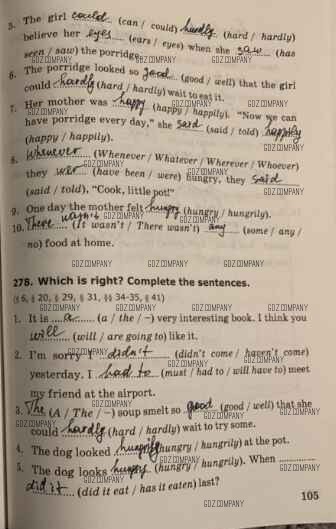 5. The girl could (can / could) hardly (hard / hardly)
believe her eyes (ears / eyes) when she saw (has
seen / saw) the porridge.
6. The porridge looked so good (good / well) that the girl
could hardly (hard / hardly) wait to eat it.
7. Her mother was happy (happy / happily). "Now we can
have porridge every day," she said (said / told) happily
(happy / happily).
8. Whenever (Whenever / Whatever / Wherever / Whoever)
they were (have been / were) hungry, they said
(said / told), "Cook, little pot!"
9. One day the mother felt hungry (hungry / hungrily).
10. There wasn't (It wasn't / There wasn't) any (some / any /
no) food at home.
GDZ.COMPANY GDZ.COMPANY GDZ.COMPANY
278. Which is right? Complete the sentences.
(§ 6, § 20, § 29, § 31, §§ 34-35, § 41)
GDZ.COMPANY GDZ.COMPANY GDZ.COMPANY GDZ.COMPANY
1. It is a (a / the / –) very interesting book. I think you
will (will / are going to) like it.
2. I'm sorry I didn't (didn't come / haven't come)
yesterday. I had to (must / had to / will have to) meet
my friend at the airport.
3. The (A / The / –) soup smelt so good (good / well) that she
could hardly (hard / hardly) wait to try some.
4. The dog looked hungrily (hungry / hungrily) at the pot.
5. The dog looks hungry (hungry / hungrily). When
did it (did it eat / has it eaten) last?
105